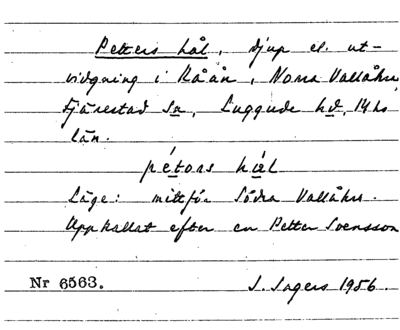 Petters hål, djup el. ut-
vidgning i Råån, Norra Vallåkra,
Fjärestad sn, Luggude hd, M-hs
län.
pétərs hɑ́l
Läge: mittför Södra Vallåkra.
Uppkallat efter en Petter Svensson
Nr 6563. S. Sagers 1956.